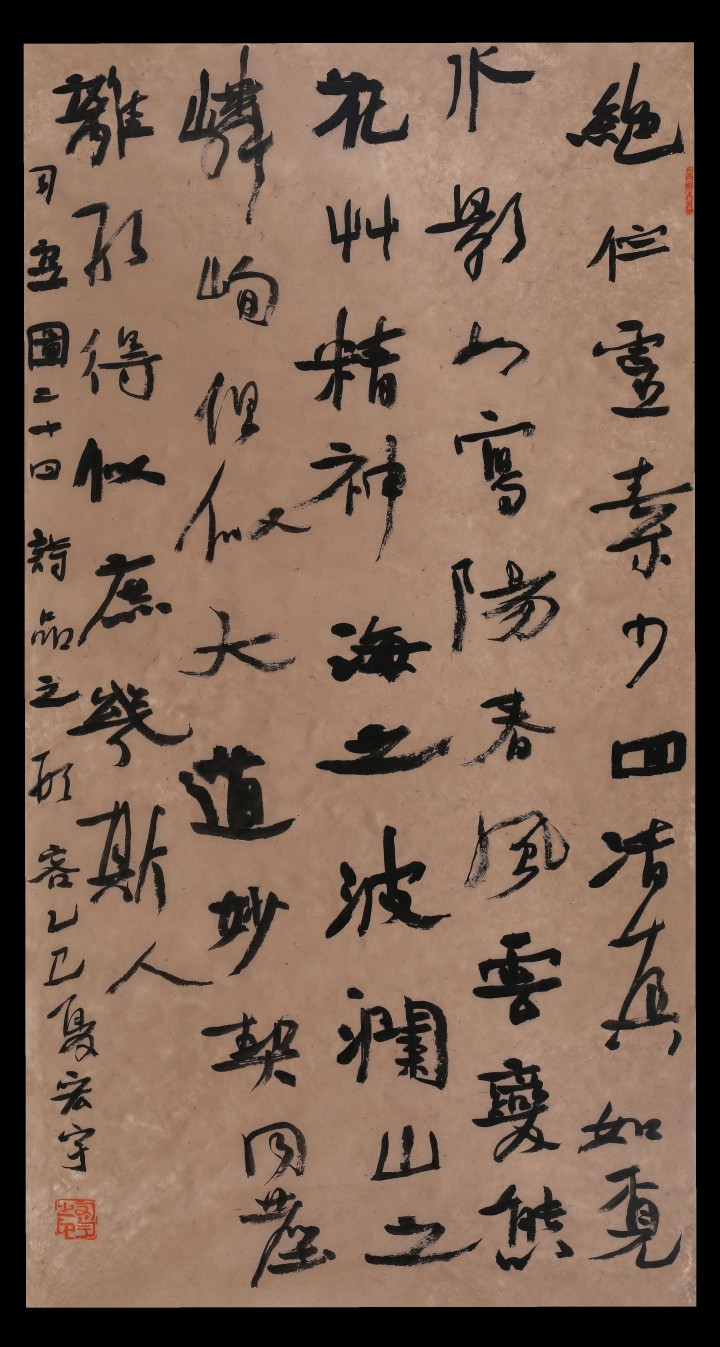 絶伫靈素少回清真如覔
水影如寫陽春風雲變態
花艸精神海之波瀾山之
嶙峋俱似大道妙契同塵
離形得似庶幾斯人
司空圖二十四詩品之形容乙巳夏宏宇